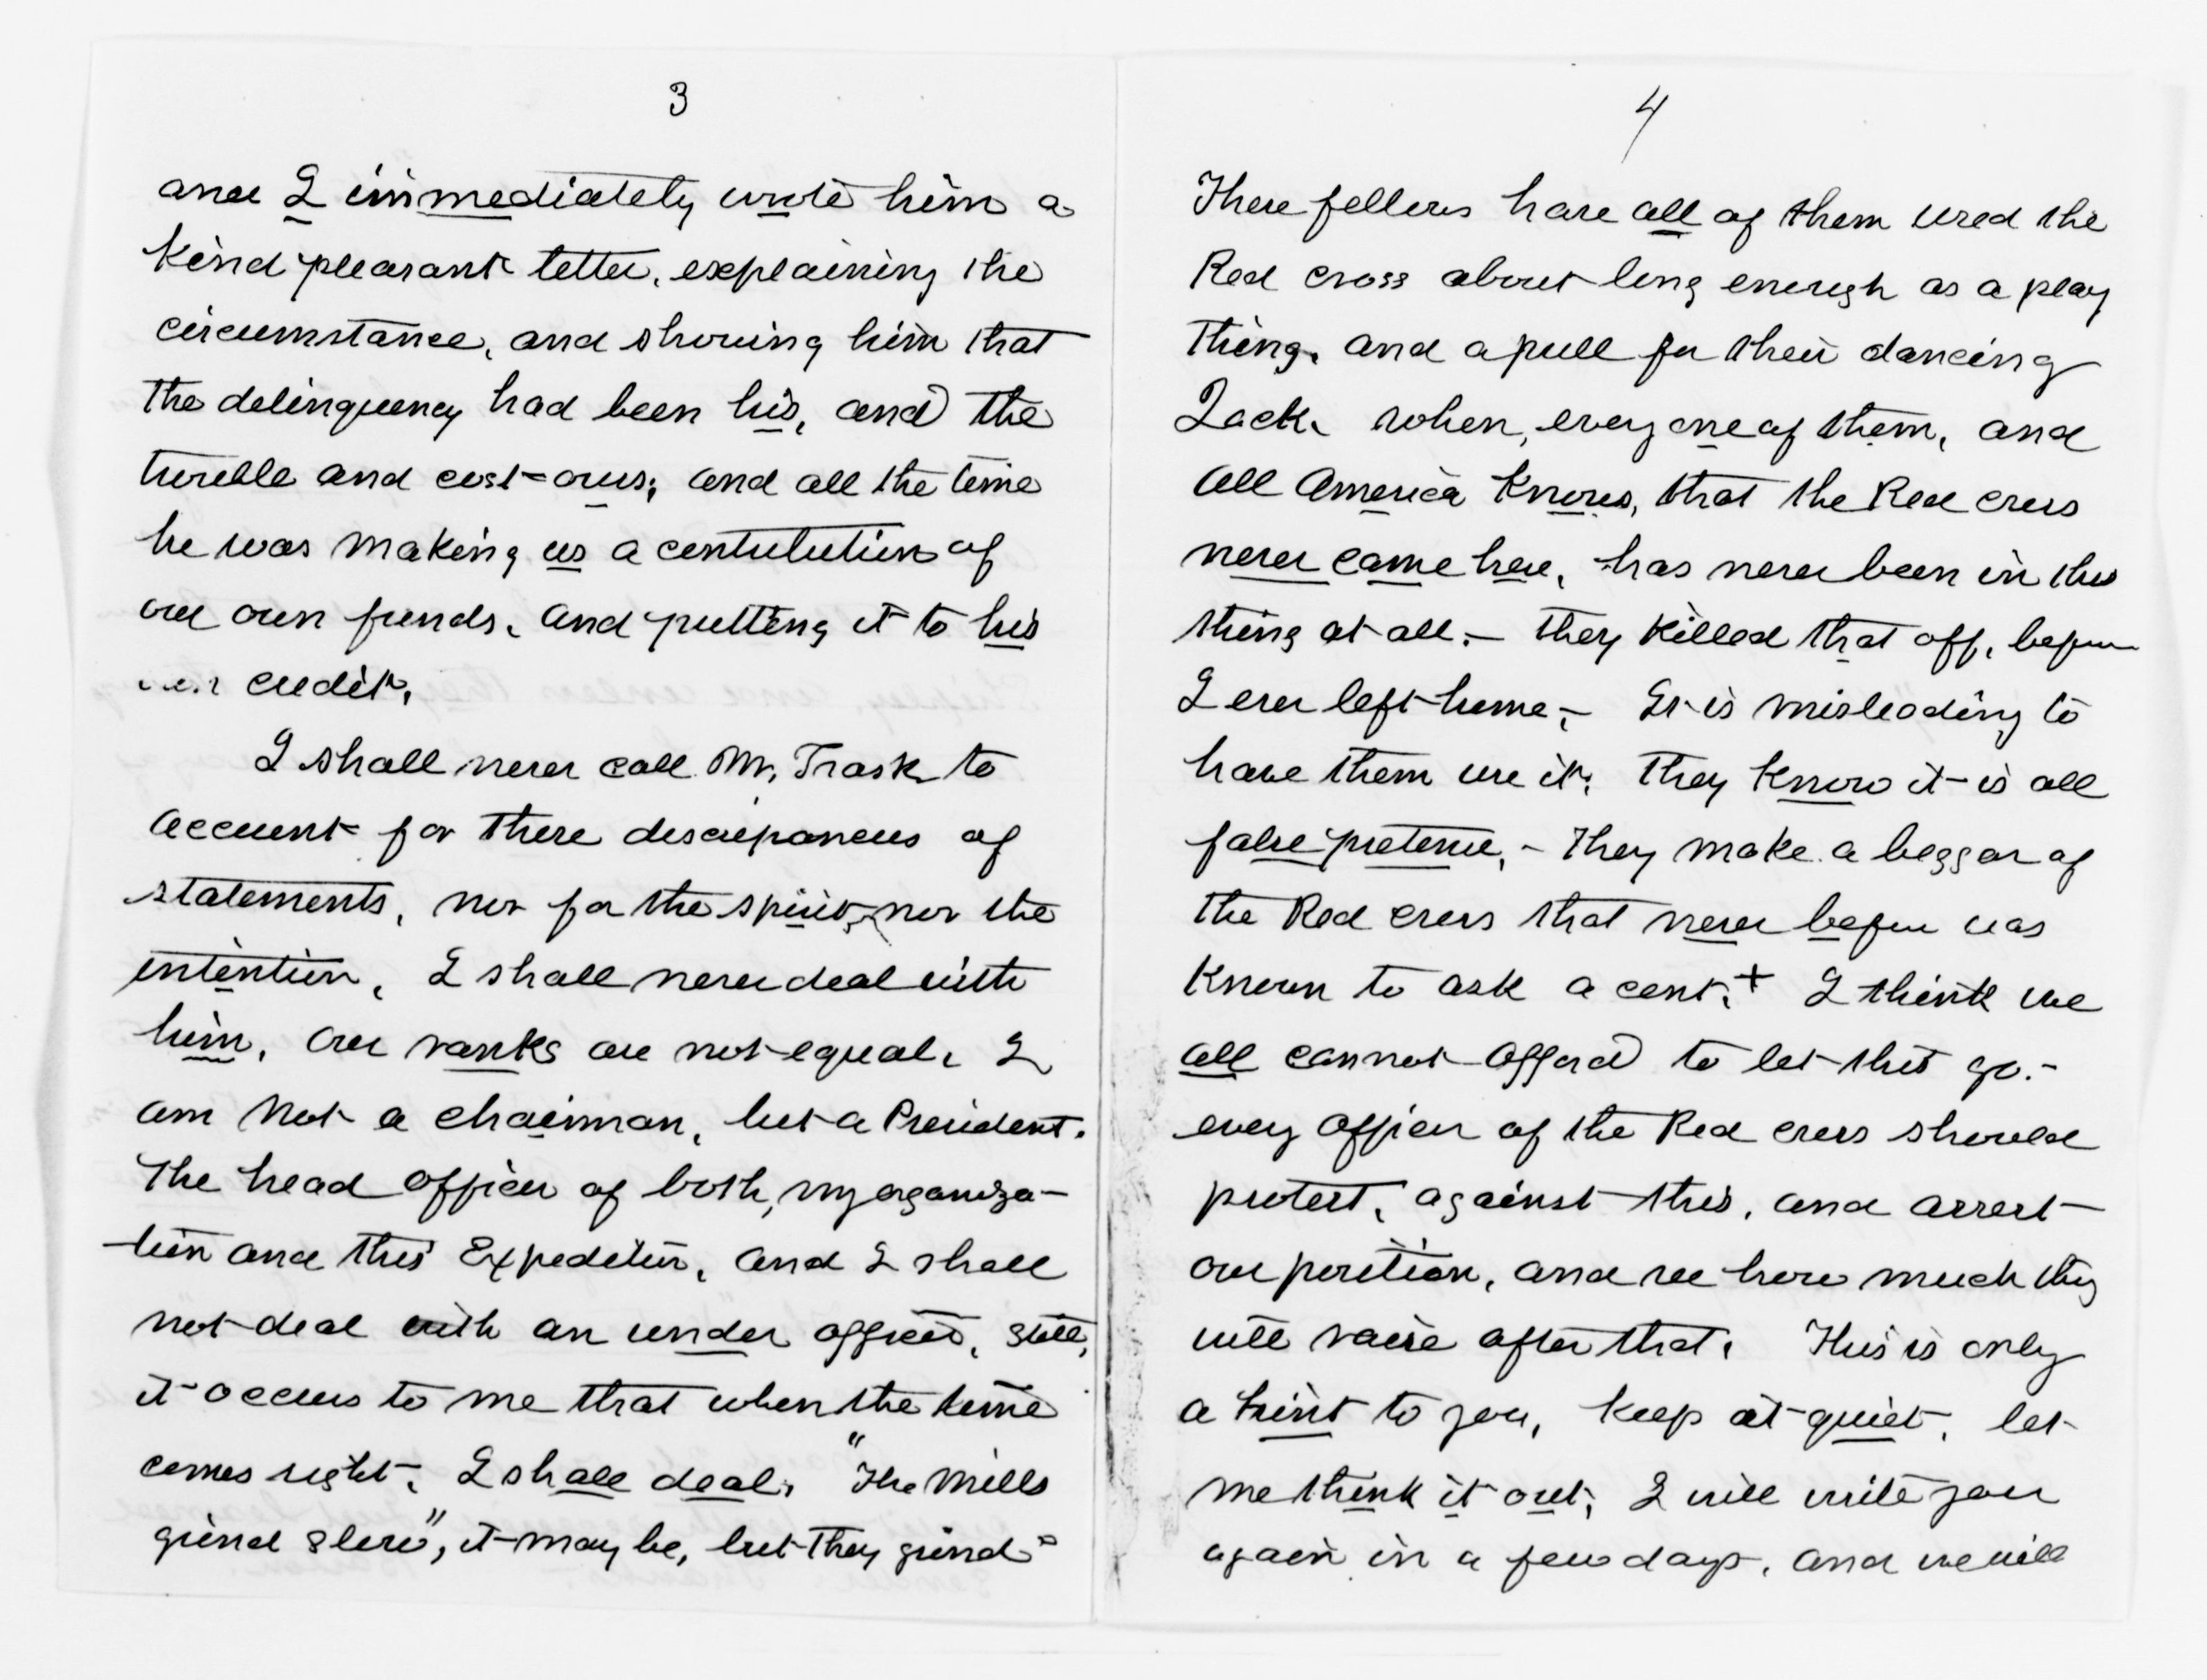 3
and I immediately wrote him a
kind pleasant letter, explaining the
circumstance, and showing him that
the delinquency had been his, and the
trouble and cost - ours; and all the time
he was making us a contribution of
our own funds, and putting it to his
own credit.
I shall never call Mr. Trask to
account for these discrepancies of
statements, nor for the spirit, nor the
intention, I shall never deal with
him, our ranks are not equal, I
am not a chairman, but a President.
The head officer of both, my organiza-
tion and this Expedition, and I shall
not deal with an under officer, still,
it occurs to me that when the time
comes right, I shall deal, "The Mills
grind slow", it may be, but they grind -
4
These fellows have all of them used the
Red cross about long enough as a play
thing, and a pull for their dancing
Jack, when, every one of them, and
all America knows, that the Red cross
never came here, has never been in this
thing at all. - they killed that off, before
I ever left home, - It is misleading to
have them use it, they know it is all
false pretense, - they make a beggar of
the Red cross that never before was
known to ask a cent, + I think we
all cannot afford to let this go. -
every officer of the Red cross should
protest, against this, and assert
our position, and see how much they
will raise after that. This is only
a hint to you, keep it quiet, let
me think it out, I will write you
again in a few days, and we will